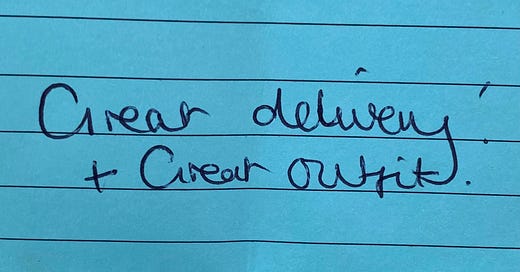 Great delivery!
+ Great outfit.